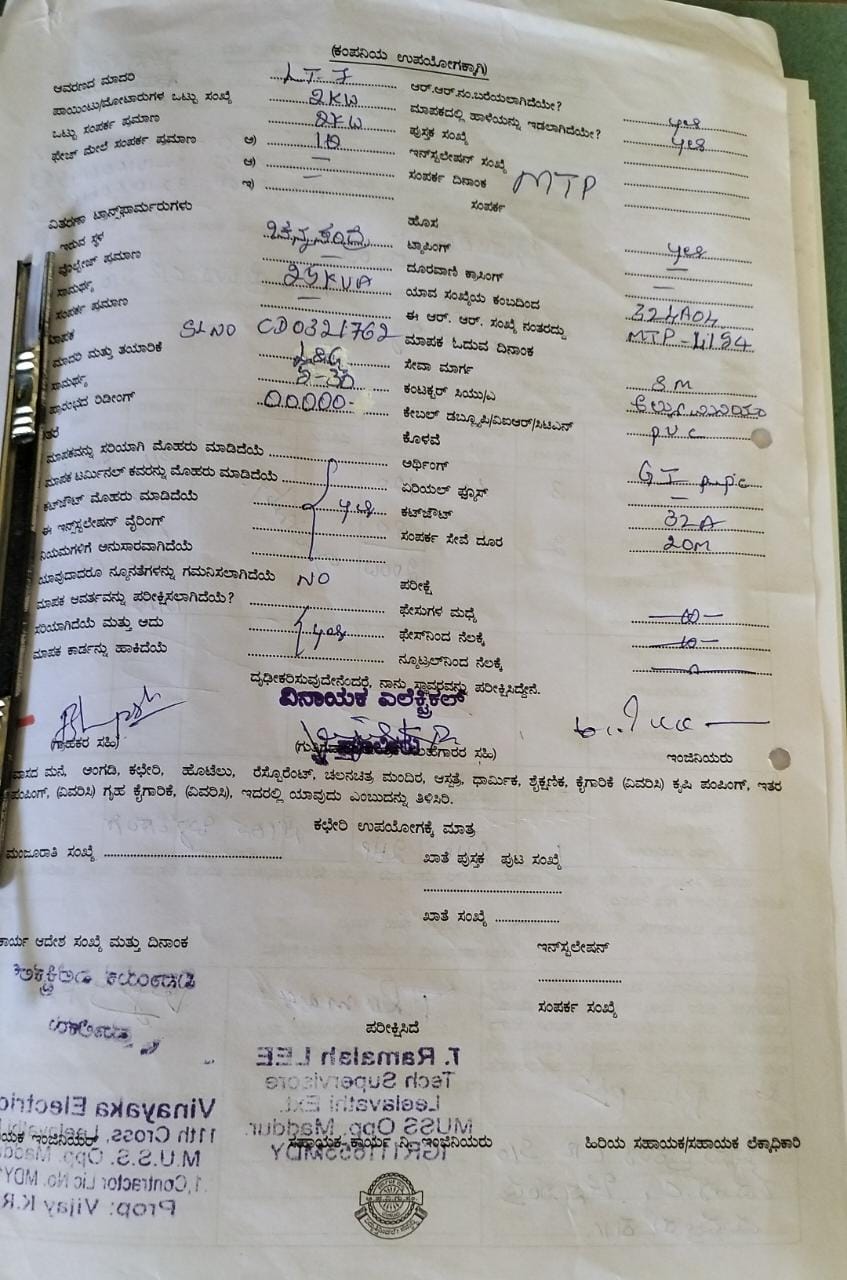 (ಕಂಪನಿಯ ಉಪಯೋಗಕ್ಕಾಗಿ)
ಆವರಣದ ಮಾದರಿ LT-7 ಆರ್.ಆರ್.ನಂ.ಬರೆಯಲಾಗಿದೆಯೇ? yes
ಪಾಯಿಂಟು/ಮೋಟಾರುಗಳ ಒಟ್ಟು ಸಂಖ್ಯೆ 2KW ಮಾಪಕದಲ್ಲಿ ಹಾಳೆಯನ್ನು ಇಡಲಾಗಿದೆಯೇ? yes
ಒಟ್ಟು ಸಂಪರ್ಕ ಪ್ರಮಾಣ 2KW ಪುಸ್ತಕ ಸಂಖ್ಯೆ
ಫೇಜ್ ಮೇಲೆ ಸಂಪರ್ಕ ಪ್ರಮಾಣ ಅ) ಇನ್‌ಸ್ಟಲೇಷನ್ ಸಂಖ್ಯೆ
ಆ) — ಸಂಪರ್ಕ ದಿನಾಂಕ MTP
ಇ) — ಸಂಪರ್ಕ
ವಿತರಣಾ ಟ್ರಾನ್ಸ್‌ಫಾರ್ಮರುಗಳು ಹೊಸ
ಇರುವ ಸ್ಥಳ ಟ್ಯಾಪಿಂಗ್ yes
ವೊಲ್ಟೇಜ್ ಪ್ರಮಾಣ — ದೂರವಾಣಿ ಕ್ರಾಸಿಂಗ್ —
ಸಾಮರ್ಥ್ಯ 25KVA ಯಾವ ಸಂಖ್ಯೆಯ ಕಂಬದಿಂದ —
ಸಂಪರ್ಕ ಪ್ರಮಾಣ — ಈ ಆರ್. ಆರ್. ಸಂಖ್ಯೆ ನಂತರದ್ದು 324A04
ಮಾಪಕ SL NO CD0321762 ಮಾಪಕ ಓದುವ ದಿನಾಂಕ MTP-4194
ಮಾದರಿ ಮತ್ತು ತಯಾರಿಕೆ L&G ಸೇವಾ ಮಾರ್ಗ
ಸಾಮರ್ಥ್ಯ 5-30 ಕಂಟಕ್ಟರ್ ಸಿಯು/ಎ 8M
ಪ್ರಾರಂಭದ ರಿಡೀಂಗ್ 00000- ಕೇಬಲ್ ಡಬ್ಲ್ಯೂಪಿ/ಏಐಆರ್/ಸಿಟಿಎನ್
ಇತರ ಕೊಳವೆ PVC
ಮಾಪಕವನ್ನು ಸರಿಯಾಗಿ ಮೊಹರು ಮಾಡಿದೆಯೆ ಆರ್ಥಿಂಗ್
ಮಾಪಕ ಟರ್ಮಿನಲ್ ಕವರನ್ನು ಮೊಹರು ಮಾಡಿದೆಯೆ ಏರಿಯಲ್ ಫ್ಯೂಸ್ GI pipe
ಕಟ್‌ಜೌಟ್ ಮೊಹರು ಮಾಡಿದೆಯೆ yes ಕಟ್‌ಜೌಟ್ —
ಈ ಇನ್‌ಸ್ಟಲೇಷನ್ ವೈರಿಂಗ್ ಸಂಪರ್ಕ ಸೇವೆ ದೂರ 32A
ನಿಯಮಗಳಿಗೆ ಅನುಸಾರವಾಗಿದೆಯೆ 20M
ಯಾವುದಾದರೂ ನ್ಯೂನತೆಗಳನ್ನು ಗಮನಿಸಲಾಗಿದೆಯೆ NO ಪರೀಕ್ಷೆ
ಮಾಪಕ ಆವರ್ತವನ್ನು ಪರೀಕ್ಷಿಸಲಾಗಿದೆಯೆ? ಫೇಸುಗಳ ಮಧ್ಯೆ
ಸರಿಯಾಗಿದೆಯೆ ಮತ್ತು ಅದು yes ಫೇಸ್‌ನಿಂದ ನೆಲಕ್ಕೆ
ಮಾಪಕ ಕಾರ್ಡನ್ನು ಹಾಕಿದೆಯೆ ನ್ಯೂಟ್ರಲ್‌ನಿಂದ ನೆಲಕ್ಕೆ
ದೃಢೀಕರಿಸುವುದೇನೆಂದರೆ, ನಾನು ಸ್ಥಾವರವನ್ನು ಪರೀಕ್ಷಿಸಿದ್ದೇನೆ.
ವಿನಾಯಕ ಎಲೆಕ್ಟ್ರಿಕಲ್
(ಗ್ರಾಹಕರ ಸಹಿ) ಸಹಿ) ಇಂಜಿನಿಯರು
ವಾಸದ ಮನೆ, ಅಂಗಡಿ, ಕಛೇರಿ, ಹೊಟೆಲು, ರೆಸ್ಟೋರೆಂಟ್, ಚಲನಚಿತ್ರ ಮಂದಿರ, ಆಸ್ಪತ್ರೆ, ಧಾರ್ಮಿಕ, ಶೈಕ್ಷಣಿಕ, ಕೈಗಾರಿಕೆ (ವಿವರಿಸಿ) ಕೃಷಿ ಪಂಪಿಂಗ್, ಇತರ
ಪಂಪಿಂಗ್, (ವಿವರಿಸಿ) ಗೃಹ ಕೈಗಾರಿಕೆ, (ವಿವರಿಸಿ), ಇದರಲ್ಲಿ ಯಾವುದು ಎಂಬುದನ್ನು ತಿಳಿಸಿರಿ.
ಕಛೇರಿ ಉಪಯೋಗಕ್ಕೆ ಮಾತ್ರ
ಮಂಜೂರಾತಿ ಸಂಖ್ಯೆ ಖಾತೆ ಪುಸ್ತಕ ಪುಟ ಸಂಖ್ಯೆ
ಖಾತೆ ಸಂಖ್ಯೆ
ಕಾರ್ಯ ಆದೇಶ ಸಂಖ್ಯೆ ಮತ್ತು ದಿನಾಂಕ ಇನ್‌ಸ್ಟಲೇಷನ್
ಸಂಪರ್ಕ ಸಂಖ್ಯೆ
ಪರೀಕ್ಷಿಸಿದೆ
T. Ramaiah LEE
Tech Supervisore
Leelavathi Ext.
MUSS Opp. Maddur.
Vinayaka Electric
11th Cross, Leelavathi
M.U.S.S. Opp. Madd
1,Contractor Lic No. MDY
Prop: Vijay K.R
ಸಹಾಯಕ ಕಾರ್ಯ ನಿ. ಇಂಜಿನಿಯರು ಹಿರಿಯ ಸಹಾಯಕ/ಸಹಾಯಕ ಲೆಕ್ಕಾಧಿಕಾರಿ